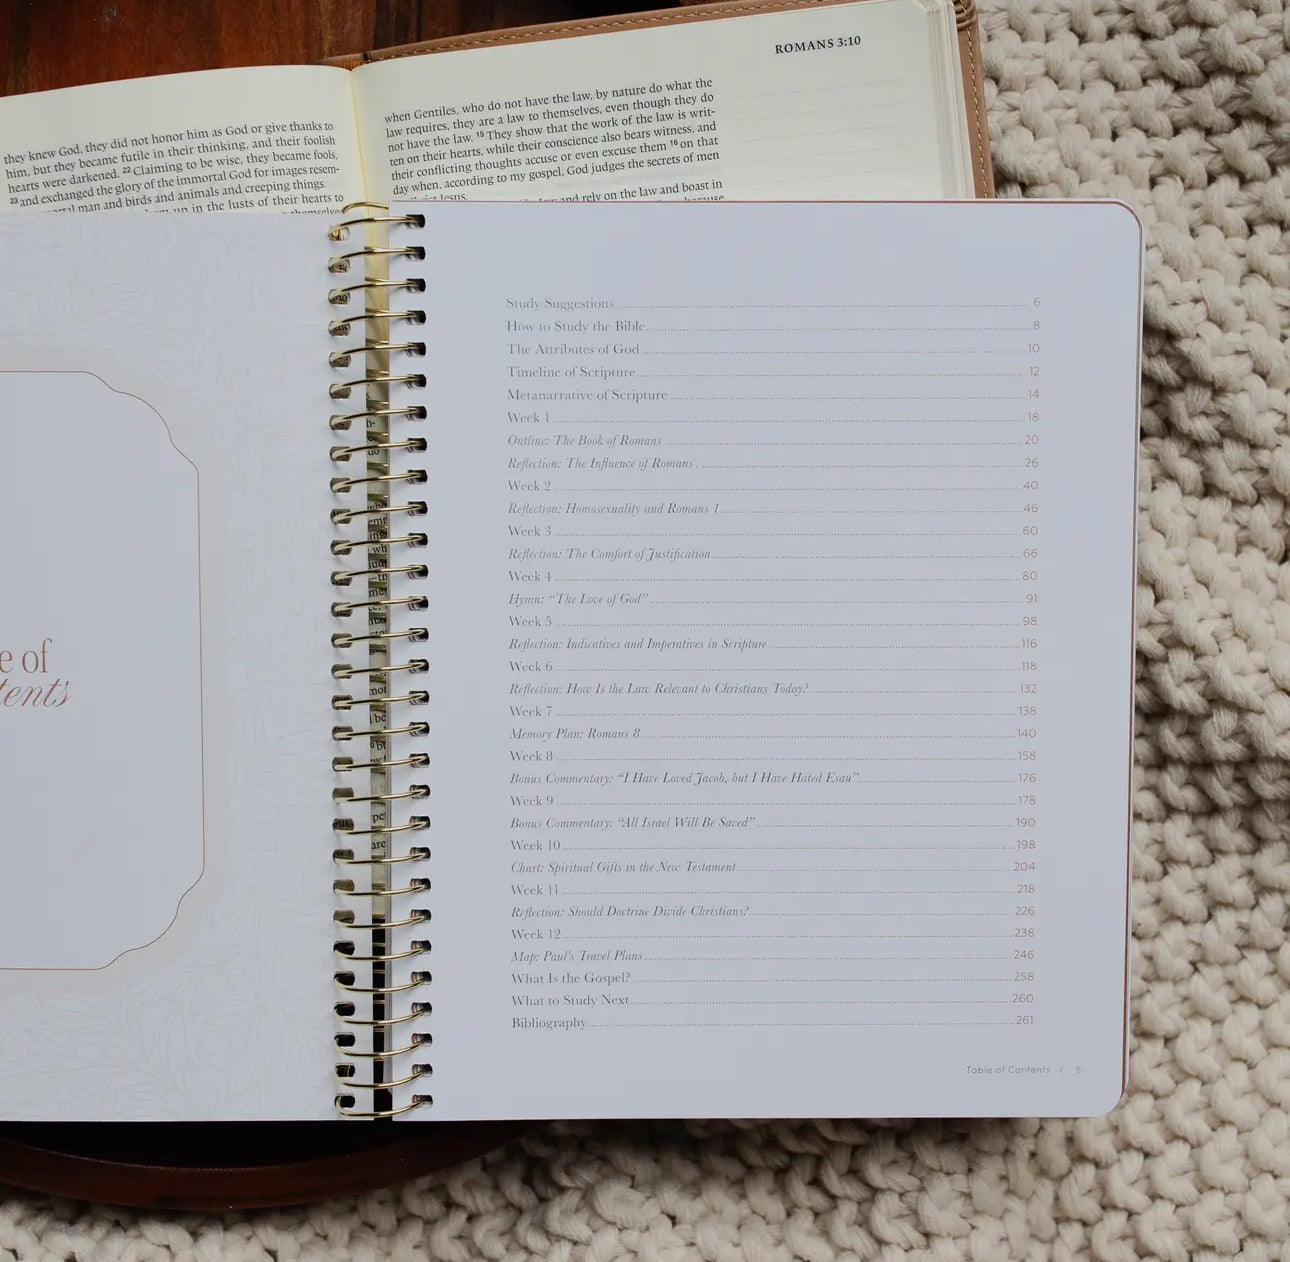 they knew God, they did not honor him as God or give thanks to
him, but they became futile in their thinking, and their foolish
hearts were darkened. 22 Claiming to be wise, they became fools,
23 and exchanged the glory of the immortal God for images resem-
man and birds and animals and creeping things.
up in the lusts of their hearts to
ROMANS 3:10
when Gentiles, who do not have the law, by nature do what the
law requires, they are a law to themselves, even though they do
not have the law. 15 They show that the work of the law is writ-
ten on their hearts, while their conscience also bears witness, and
their conflicting thoughts accuse or even excuse them 16 on that
day when, according to my gospel, God judges the secrets of men
Jesus.
and rely on the law and boast in
e of
tents
Study Suggestions 6
How to Study the Bible 8
The Attributes of God 10
Timeline of Scripture 12
Metanarrative of Scripture 14
Week 1 18
Outline: The Book of Romans 20
Reflection: The Influence of Romans 26
Week 2 40
Reflection: Homosexuality and Romans 1 46
Week 3 60
Reflection: The Comfort of Justification 66
Week 4 80
Hymn: “The Love of God” 91
Week 5 98
Reflection: Indicatives and Imperatives in Scripture 116
Week 6 118
Reflection: How Is the Law Relevant to Christians Today? 132
Week 7 138
Memory Plan: Romans 8 140
Week 8 158
Bonus Commentary: “I Have Loved Jacob, but I Have Hated Esau” 176
Week 9 178
Bonus Commentary: “All Israel Will Be Saved” 190
Week 10 198
Chart: Spiritual Gifts in the New Testament 204
Week 11 218
Reflection: Should Doctrine Divide Christians? 226
Week 12 238
Map: Paul’s Travel Plans 246
What Is the Gospel? 258
What to Study Next 260
Bibliography 261
Table of Contents / 5